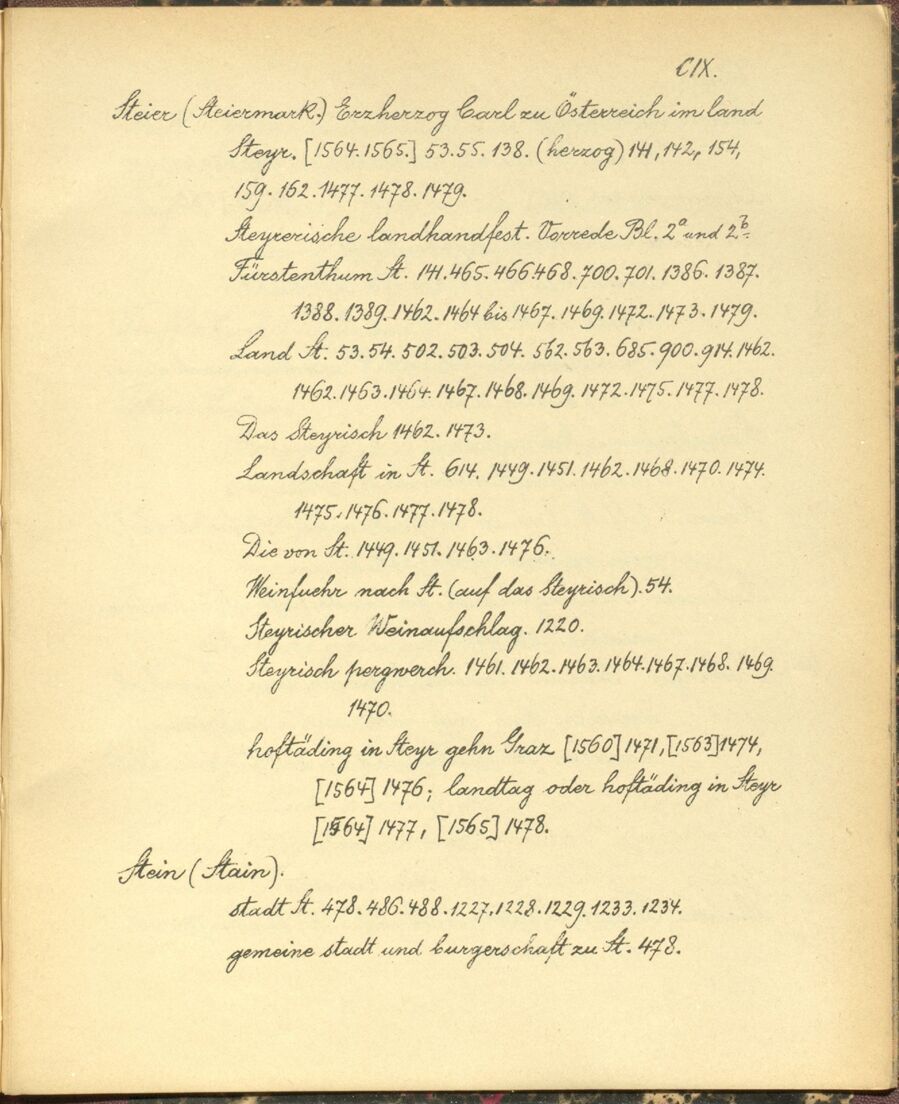 CIX.
Steier (Steiermark.) Erzherzog Carl zu Österreich im land
Steyr. [1564.1565.] 53.55. 138. (herzog) 141, 142, 154,
159. 162. 1477. 1478. 1479.
Steyrerische landhandfest. Vorrede Bl. 2a und 2b.
Fürstenthum St. 141. 465. 466.468. 700. 701. 1386. 1387.
1388. 1389. 1462. 1464 bis 1467. 1469. 1472. 1473. 1479.
Land St. 53. 54. 502. 503. 504. 562. 563. 685. 900. 914. 1462.
1462. 1463. 1464. 1467. 1468. 1469. 1472. 1475. 1477. 1478.
Das Steyrisch 1462. 1473.
Landschaft in St. 614. 1449. 1451. 1462. 1468. 1470. 1474.
1475. 1476. 1477. 1478.
Die von St. 1449. 1451. 1463. 1476.
Weinfuehr nach St. (auf das Steyrisch). 54.
Steyrischer Weinaufschlag. 1220.
Steyrisch pergwerch. 1461. 1462. 1463. 1464. 1467. 1468. 1469.
1470.
hoftäding in Steyr gehn Graz [1560] 1471, [1563] 1474,
[1564] 1476; landtag oder hoftäding in Steyr
[1564] 1477, [1565] 1478.
Stein (Stain).
stadt St. 478. 486. 488. 1227. 1228. 1229. 1233. 1234.
gemeine stadt und burgerschaft zu St. 478.